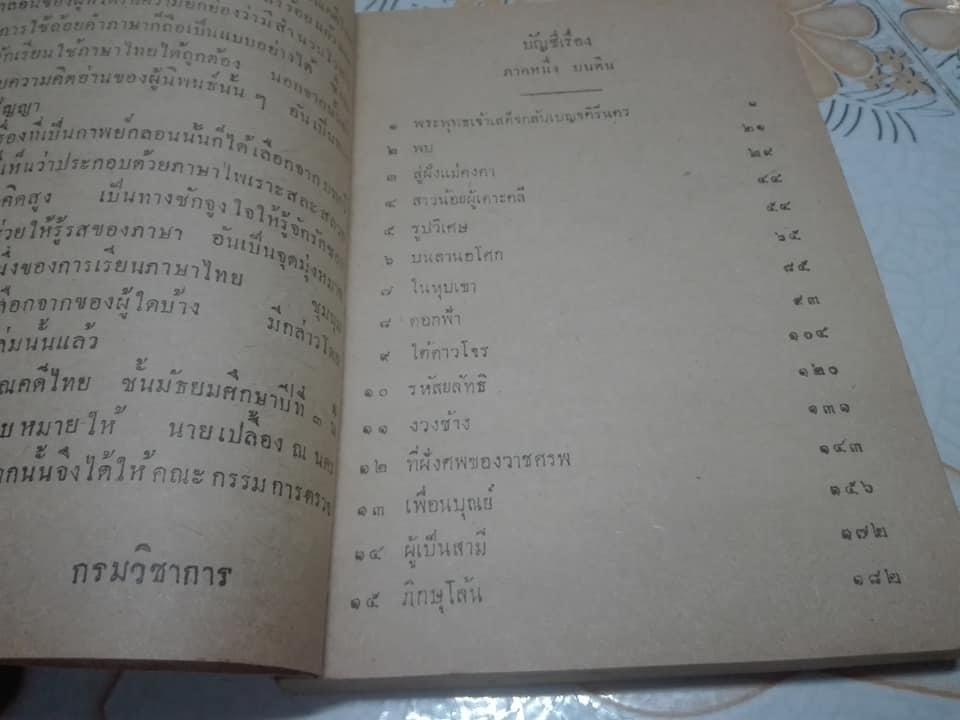 การใช้ถ้อยคำภาษาก็ถือเป็นแบบอย่างได้
นักเรียนใช้ภาษาไทยได้ถูกต้อง นอกจากนั้น
ความคิดอ่านของผู้นิพนธ์นั้น ๆ
ปัญญา
เรื่องที่เป็นกาพย์กลอนนั้นก็ได้เลือกจาก
เห็นว่าประกอบด้วยภาษาไพเราะสละสลวย
คิดสูง เป็นทางชักจูงใจให้รู้จักรัก
ช่วยให้รู้รสของภาษา อันเป็นจุดมุ่งหมาย
หนึ่งของการเรียนภาษาไทย ชุมนุม
เลือกจากของผู้ใดบ้าง มีกล่าวโดย
นั้นแล้ว
ณคดีไทย ชั้นมัธยมศึกษาปีที่ ๓
บหมายให้ นายเปลื้อง ณ นคร
ากนั้นจึงได้ให้คณะกรรมการตรวจ
กรมวิชาการ
บัญชีเรื่อง
ภาคหนึ่ง บนดิน
๑ พระพุทธเจ้าเสด็จกลับเบญจคิรีนคร ๑
๒ พบ ๒๑
๓ สู่ฝั่งแม่คงคา ๒๙
๔ สาวน้อยผู้เคาะคลี ๔๔
๕ รูปวิเศษ ๕๔
๖ บนลานอโศก ๖๕
๗ ในหุบเขา ๘๕
๘ ดอกฟ้า ๙๓
๙ ใต้ดาวโจร ๑๐๔
๑๐ รหัสยลัทธิ ๑๒๐
๑๑ งวงช้าง ๑๓๑
๑๒ ที่ฝังศพของวาชศรพ ๑๔๓
๑๓ เพื่อนบุณย์ ๑๕๖
๑๔ ผู้เป็นสามี ๑๗๒
๑๕ ภิกษุโล้น ๑๘๒